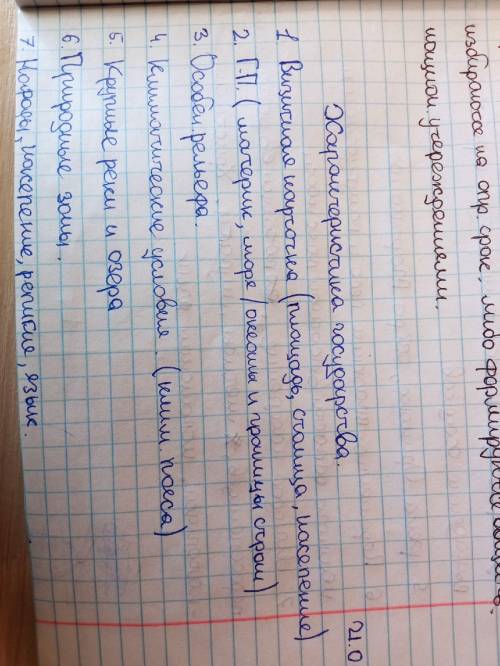 избираются на опр. срок, либо формируются
мощном учереждениями.
21.0
Характеристика государства.
1. Визитная карточка (площадь, столица, население)
2. Г.П. ( материк, море / океаны и границы стран)
3. Особен. рельефа.
4. климатические условия. (клим. пояса)
5. Крупные реки и озера
6. Природные зоны.
7. Народы, население, религия, язык.